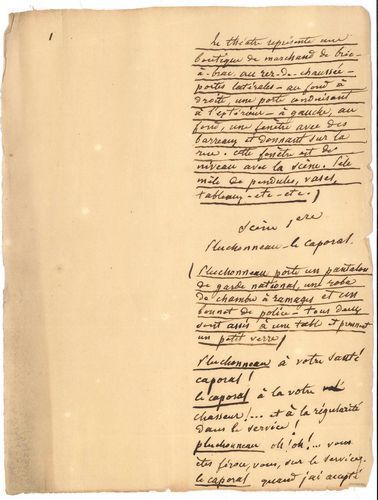 1
Le théatre représente une
boutique de marchand de bric-
à-brac, au rez-de-chaussée -
portes latérales - au fond à
droite, une porte conduisant
à l'extérieur - à gauche, au
fond, une fenêtre avec des
barreaux et donnant sur la
rue. cette fenêtre est de
niveau avec la scène. Pêle
mêle de pendules, vases,
tableaux - etc - etc. )
Scène 1ere
Pluchonneau - le caporal.
( Pluchonneau porte un pantalon
de garde national, une robe
de chambre à ramages et un
bonnet de police - tous deux
sont assis à une table et prennent
un petit verre )
Pluchonneau à votre santé
caporal !
le caporal à la votre
chasseur !... et à la régularité
dans le service !
pluchonneau oh ! oh !... vous
êtes féroce, vous, sur le service.
le caporal quand j'ai accepté